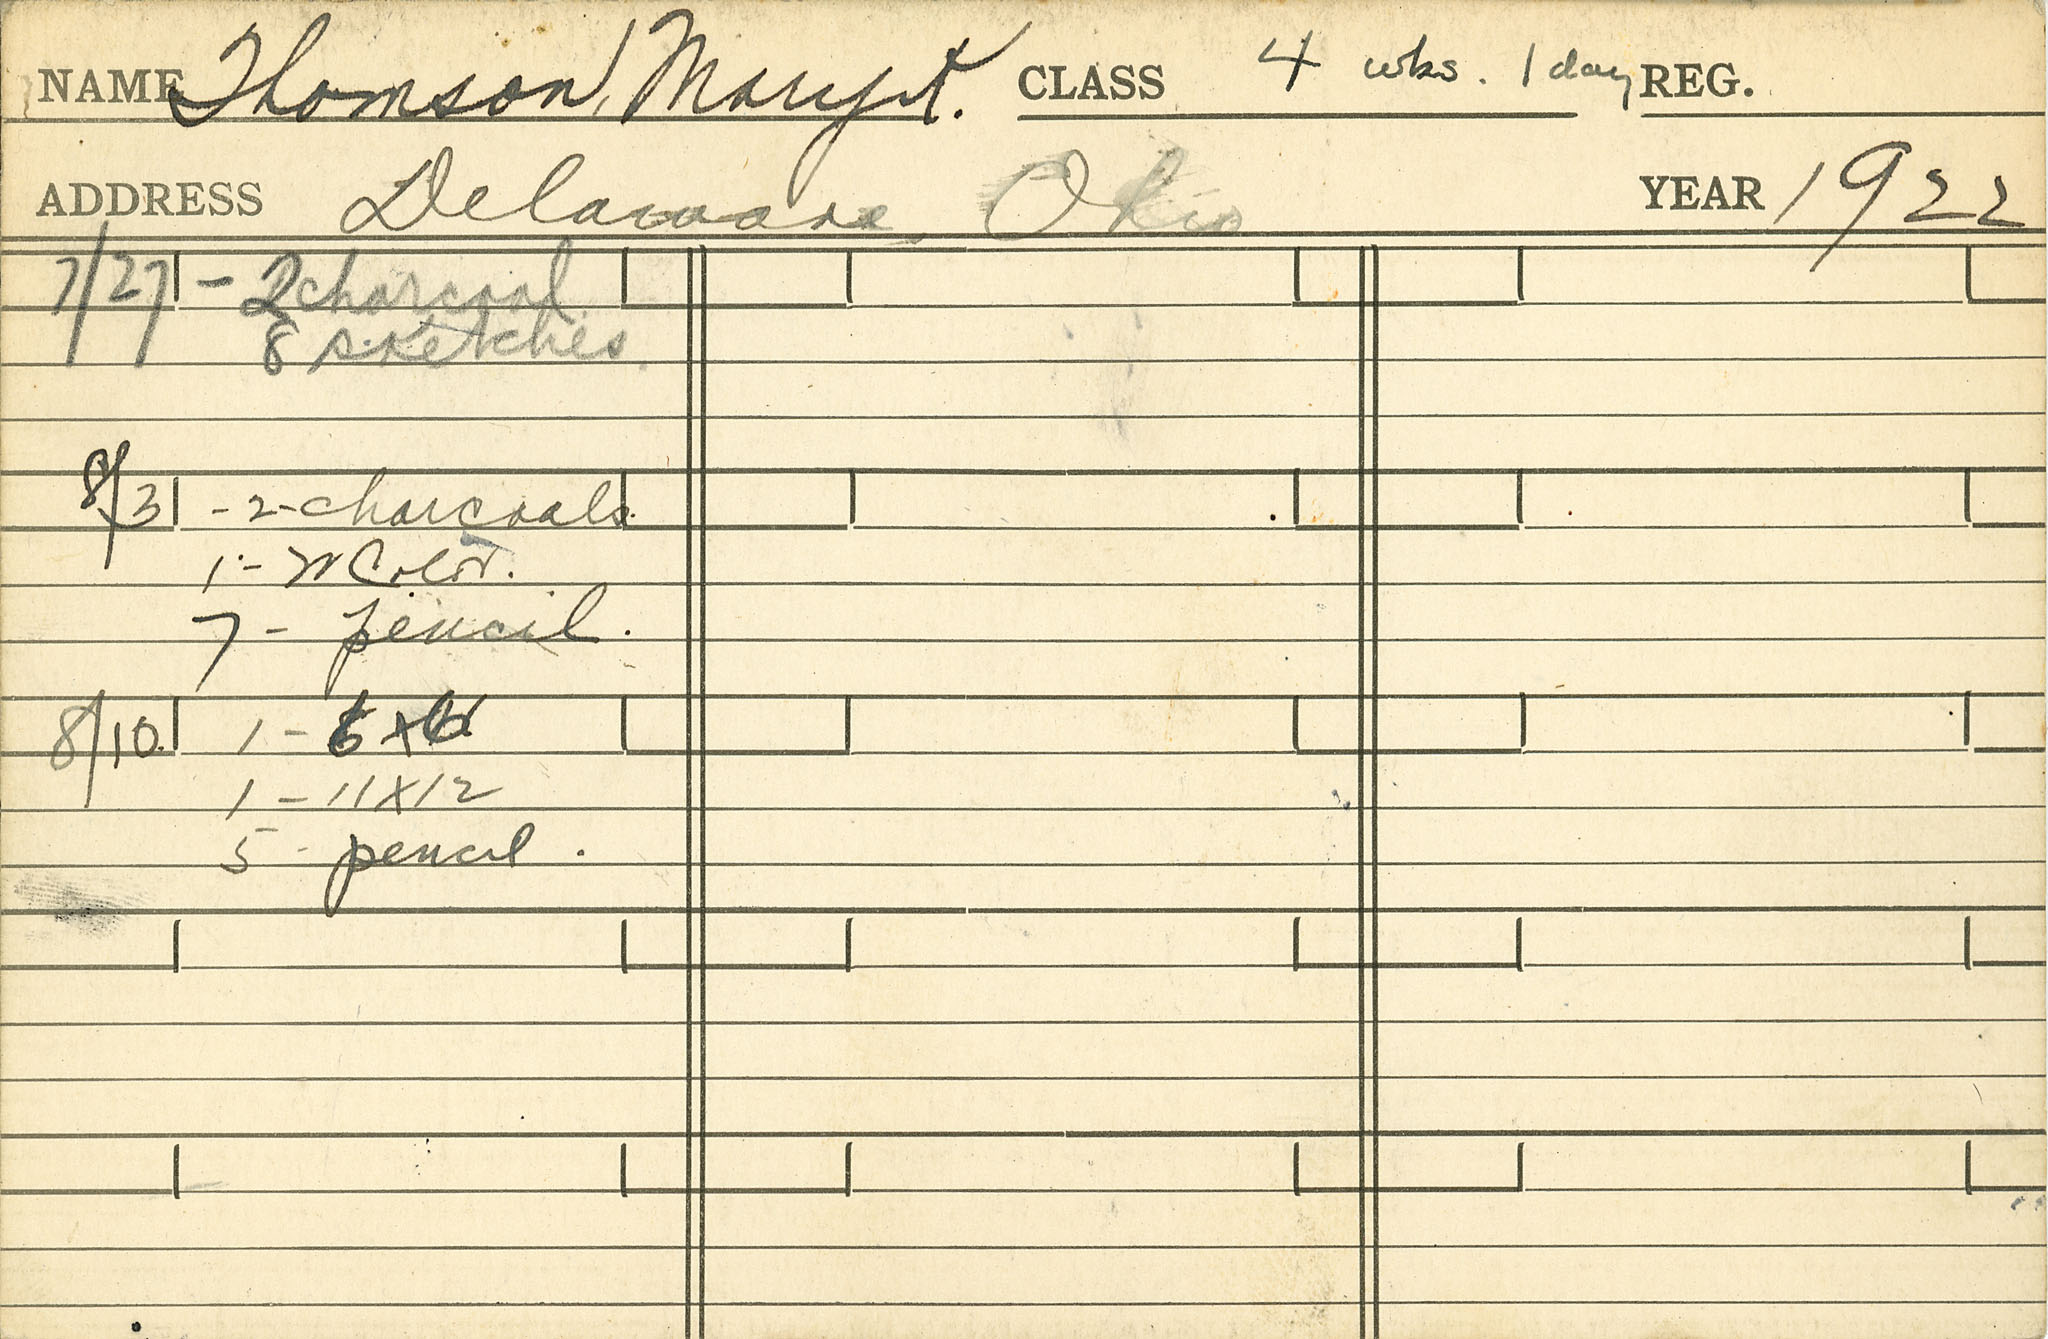 NAME Thomson, Mary CLASS 4 wks. 1 day REG.
ADDRESS Delaware, Ohio YEAR 1922
7/27 - 2 charcoal
8 sketches
8/3 - 2 - charcoals.
1 - W Color.
7 - pencil.
8/10. 1 - 6 x
1 - 11 x 12
5 - pencil.